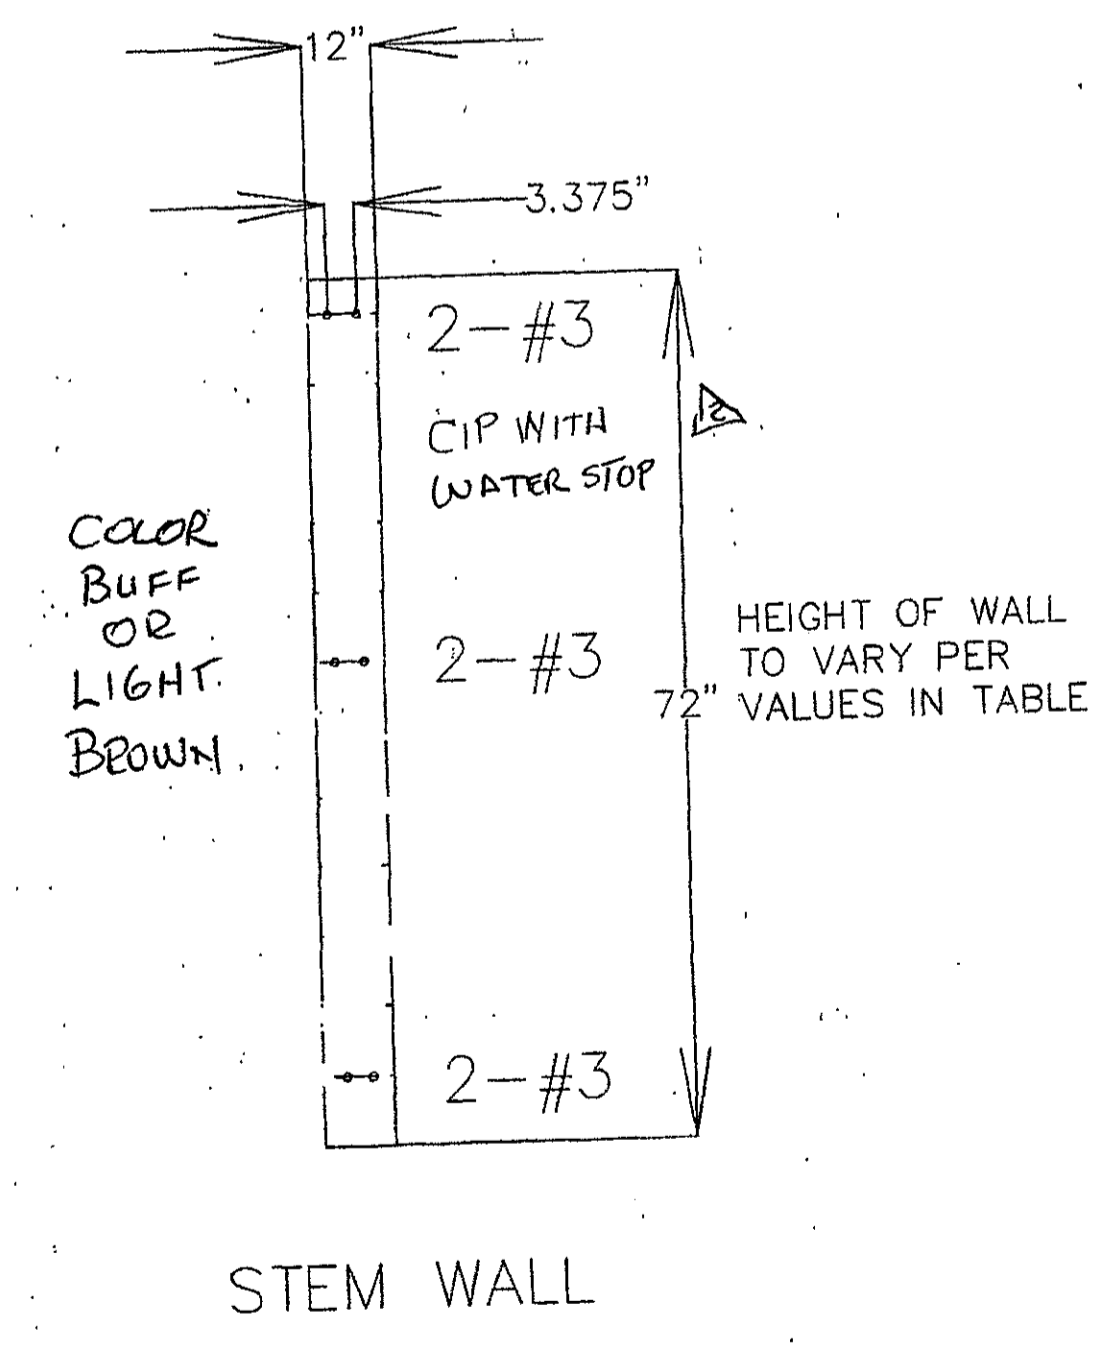 12"
3.375"
2-#3
CIP WITH
WATER STOP
2
COLOR
BUFF
OR
LIGHT.
BROWN.
2-#3
HEIGHT OF WALL
TO VARY PER
72" VALUES IN TABLE
2-#3
STEM WALL